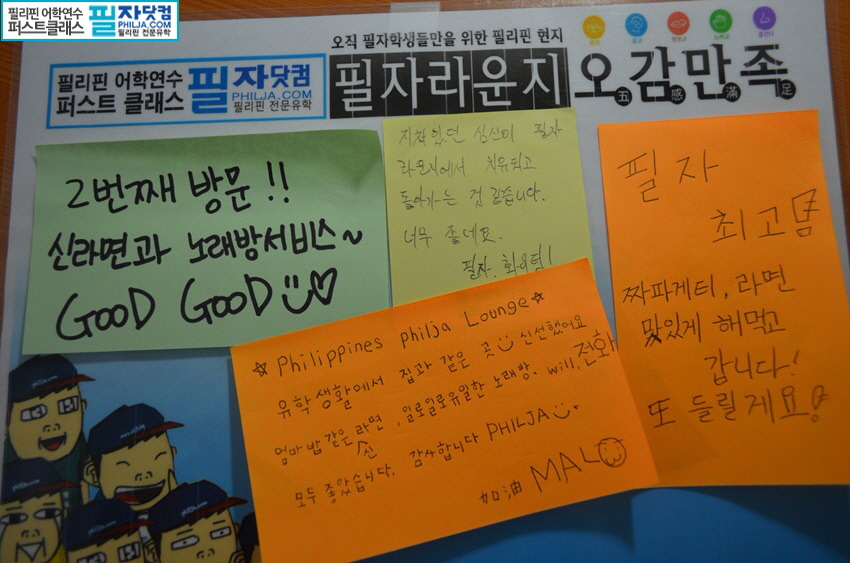 필리핀 어학연수
퍼스트클래스
필자닷컴
PHILJA.COM
필리핀 전문유학
오직 필자학생들만을 위한 필리핀 현지
필리핀 어학연수
퍼스트 클래스
필자닷컴
PHILJA.COM
필리핀 전문유학
필자라운지 오감만족
五 感 滿 足
2번째 방문!!
신라면과 노래방서비스~
GOOD GOOD
지쳐있던 심신이 필자
라운지에서 치유되고
돌아가는 것 같습니다.
너무 좋네요.
필자. 화이팅!
필자
최고
짜파게티, 라면
맛있게 해먹고
갑니다!
또 들릴게요!
☆ Philippines Philja Lounge ☆
유학생활에서 집과 같은 곳 신선했어요
엄마밥같은 신라면, 일로일로유일한 노래방. wifi, 전화
모두 좋았습니다. 감사합니다 PHILJA
加油 MALO
philja.com
philja.com